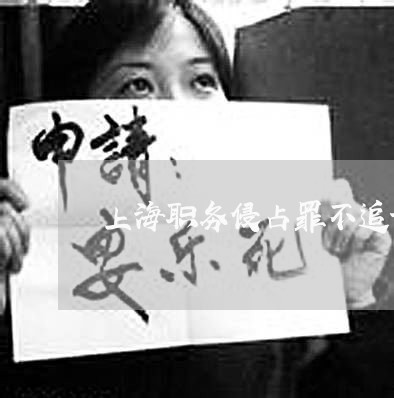 申請：
上海职务侵占罪不追
安乐死